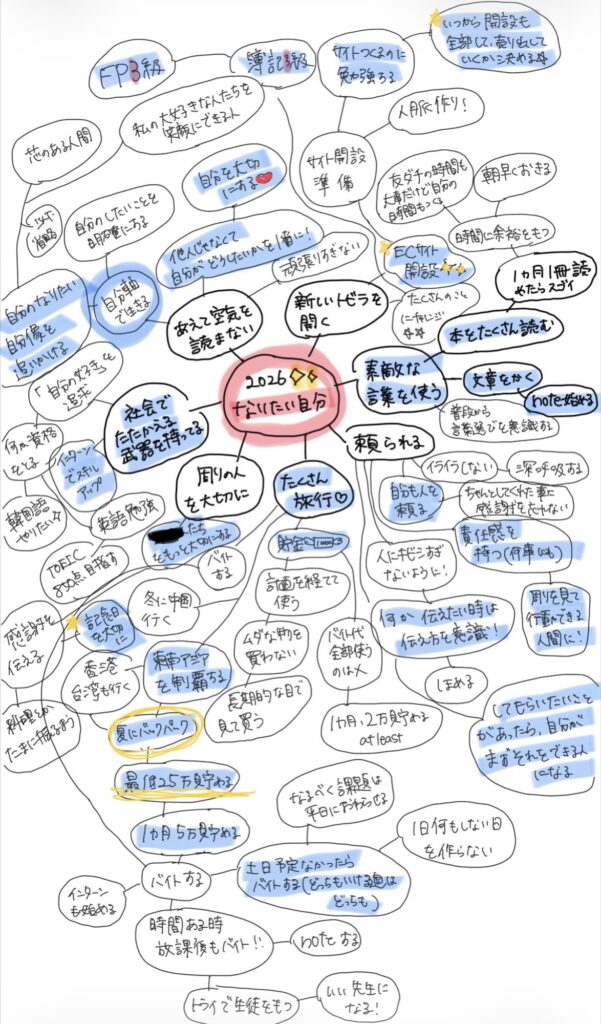 FP3級
簿記3級
サイトつくるのに
勉強する
いつから開設も
全部して、売り出して
いくか決める☆
私の大好きな人たちを
笑顔にできる人
芯のある人間
人脈作り！
サイト開設
準備
自分を大切
にする❤
友ダチの時間も
大事だけど自分の
時間もつくる
朝早くおきる
自分のしたいことを
明確にする
他人じゃなくて
自分がどうしたいかを1番に！
頑張りすぎない
ECサイト
開設
時間に余裕をもつ
1カ月1冊読
めたらスゴイ
自分のなりたい
自分像を
追いかける
自分軸
で生きる
あえて空気を
読まない
新しいトビラを
開く
たくさんのこと
本をたくさん読む
「自分の好き」を
追求
2026
なりたい自分
素敵な
言葉を使う
文章をかく
note始める
社会で
たたかえる
武器を持ってる
普段から
言葉選びを意識する
何か資格
をとる
インターン
でスキル
アップ
周りの人
を大切に
たくさん
旅行♡
頼られる
イライラしない
深呼吸する
韓国語
やりたい☆
英語勉強
自分も人を
頼る
ちゃんとしてくれた事に
感謝を忘れない
TOEIC
800点目指す
たち
をもっと大切にする
貯金
バイト
する
人にキビシすぎ
ないように！
責任感を
持つ(何事にも)
計画を経てて
使う
感謝を
伝える
記念日
を大切
に
冬に中国
行く
ムダな物を
買わない
バイト代
全部使う
のは×
何か伝えたい時は
伝え方を意識！！
周りを見て
行動できる
人間に！
香港
台湾も行く
東南アジア
を制覇する
長期的な目で
見て買う
ほめる
料理とか
たまに振るまう
夏にバックパック
1カ月、2万貯める
at least
してもらいたいこと
があったら、自分が
まずそれをできる人
になる
最低25万貯める
なるべく課題は
平日におわらせる
1カ月5万貯める
1日何もしない日
を作らない
バイトする
土日予定なかったら
バイトする(どっちもいける週は
どっちも)
インターン
も始める
時間ある時
放課後もバイト！！
noteする
トライで生徒をもつ
いい先生に
なる！